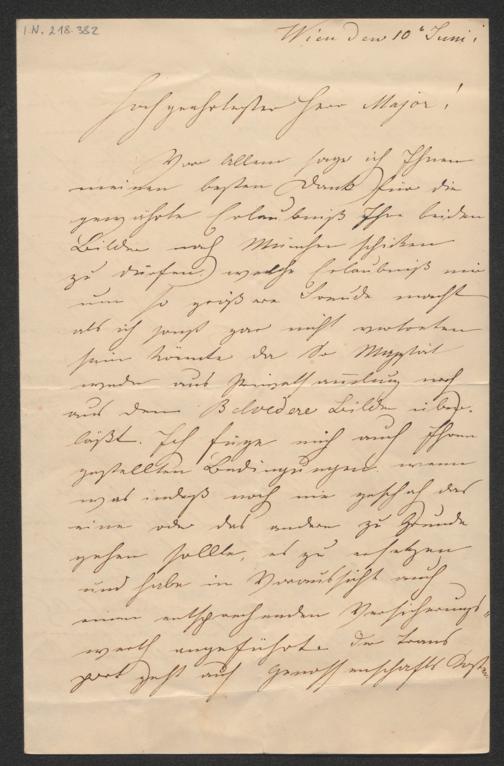 I.N. 218.382
Wien den 10t Juni.
Hochgeehrtester Herr Major!
Vor Allem sage ich Ihnen
meinen besten Dank für die
gewährte Erlaubniß Ihre beiden
Bilder nach München schicken
zu dürfen, welche Erlaubniß mir
um so größere Freude macht
als ich sonst gar nicht vertreten
sein könnte da Se Majestät
weder aus Privatsammlung noch
aus dem Belvedere Bilder über-
läßt. Ich füge mich auch Ihren
gestellten Bedingungen wenn
was indeß noch nie geschah das
eine oder das andere zu Grunde
gehen sollte, es zu ersetzen
und habe in Voraussicht auch
einen entsprechenden Versicherungs-
werth angeführt. Der Trans
port geht auf Genossenschafts Kosten